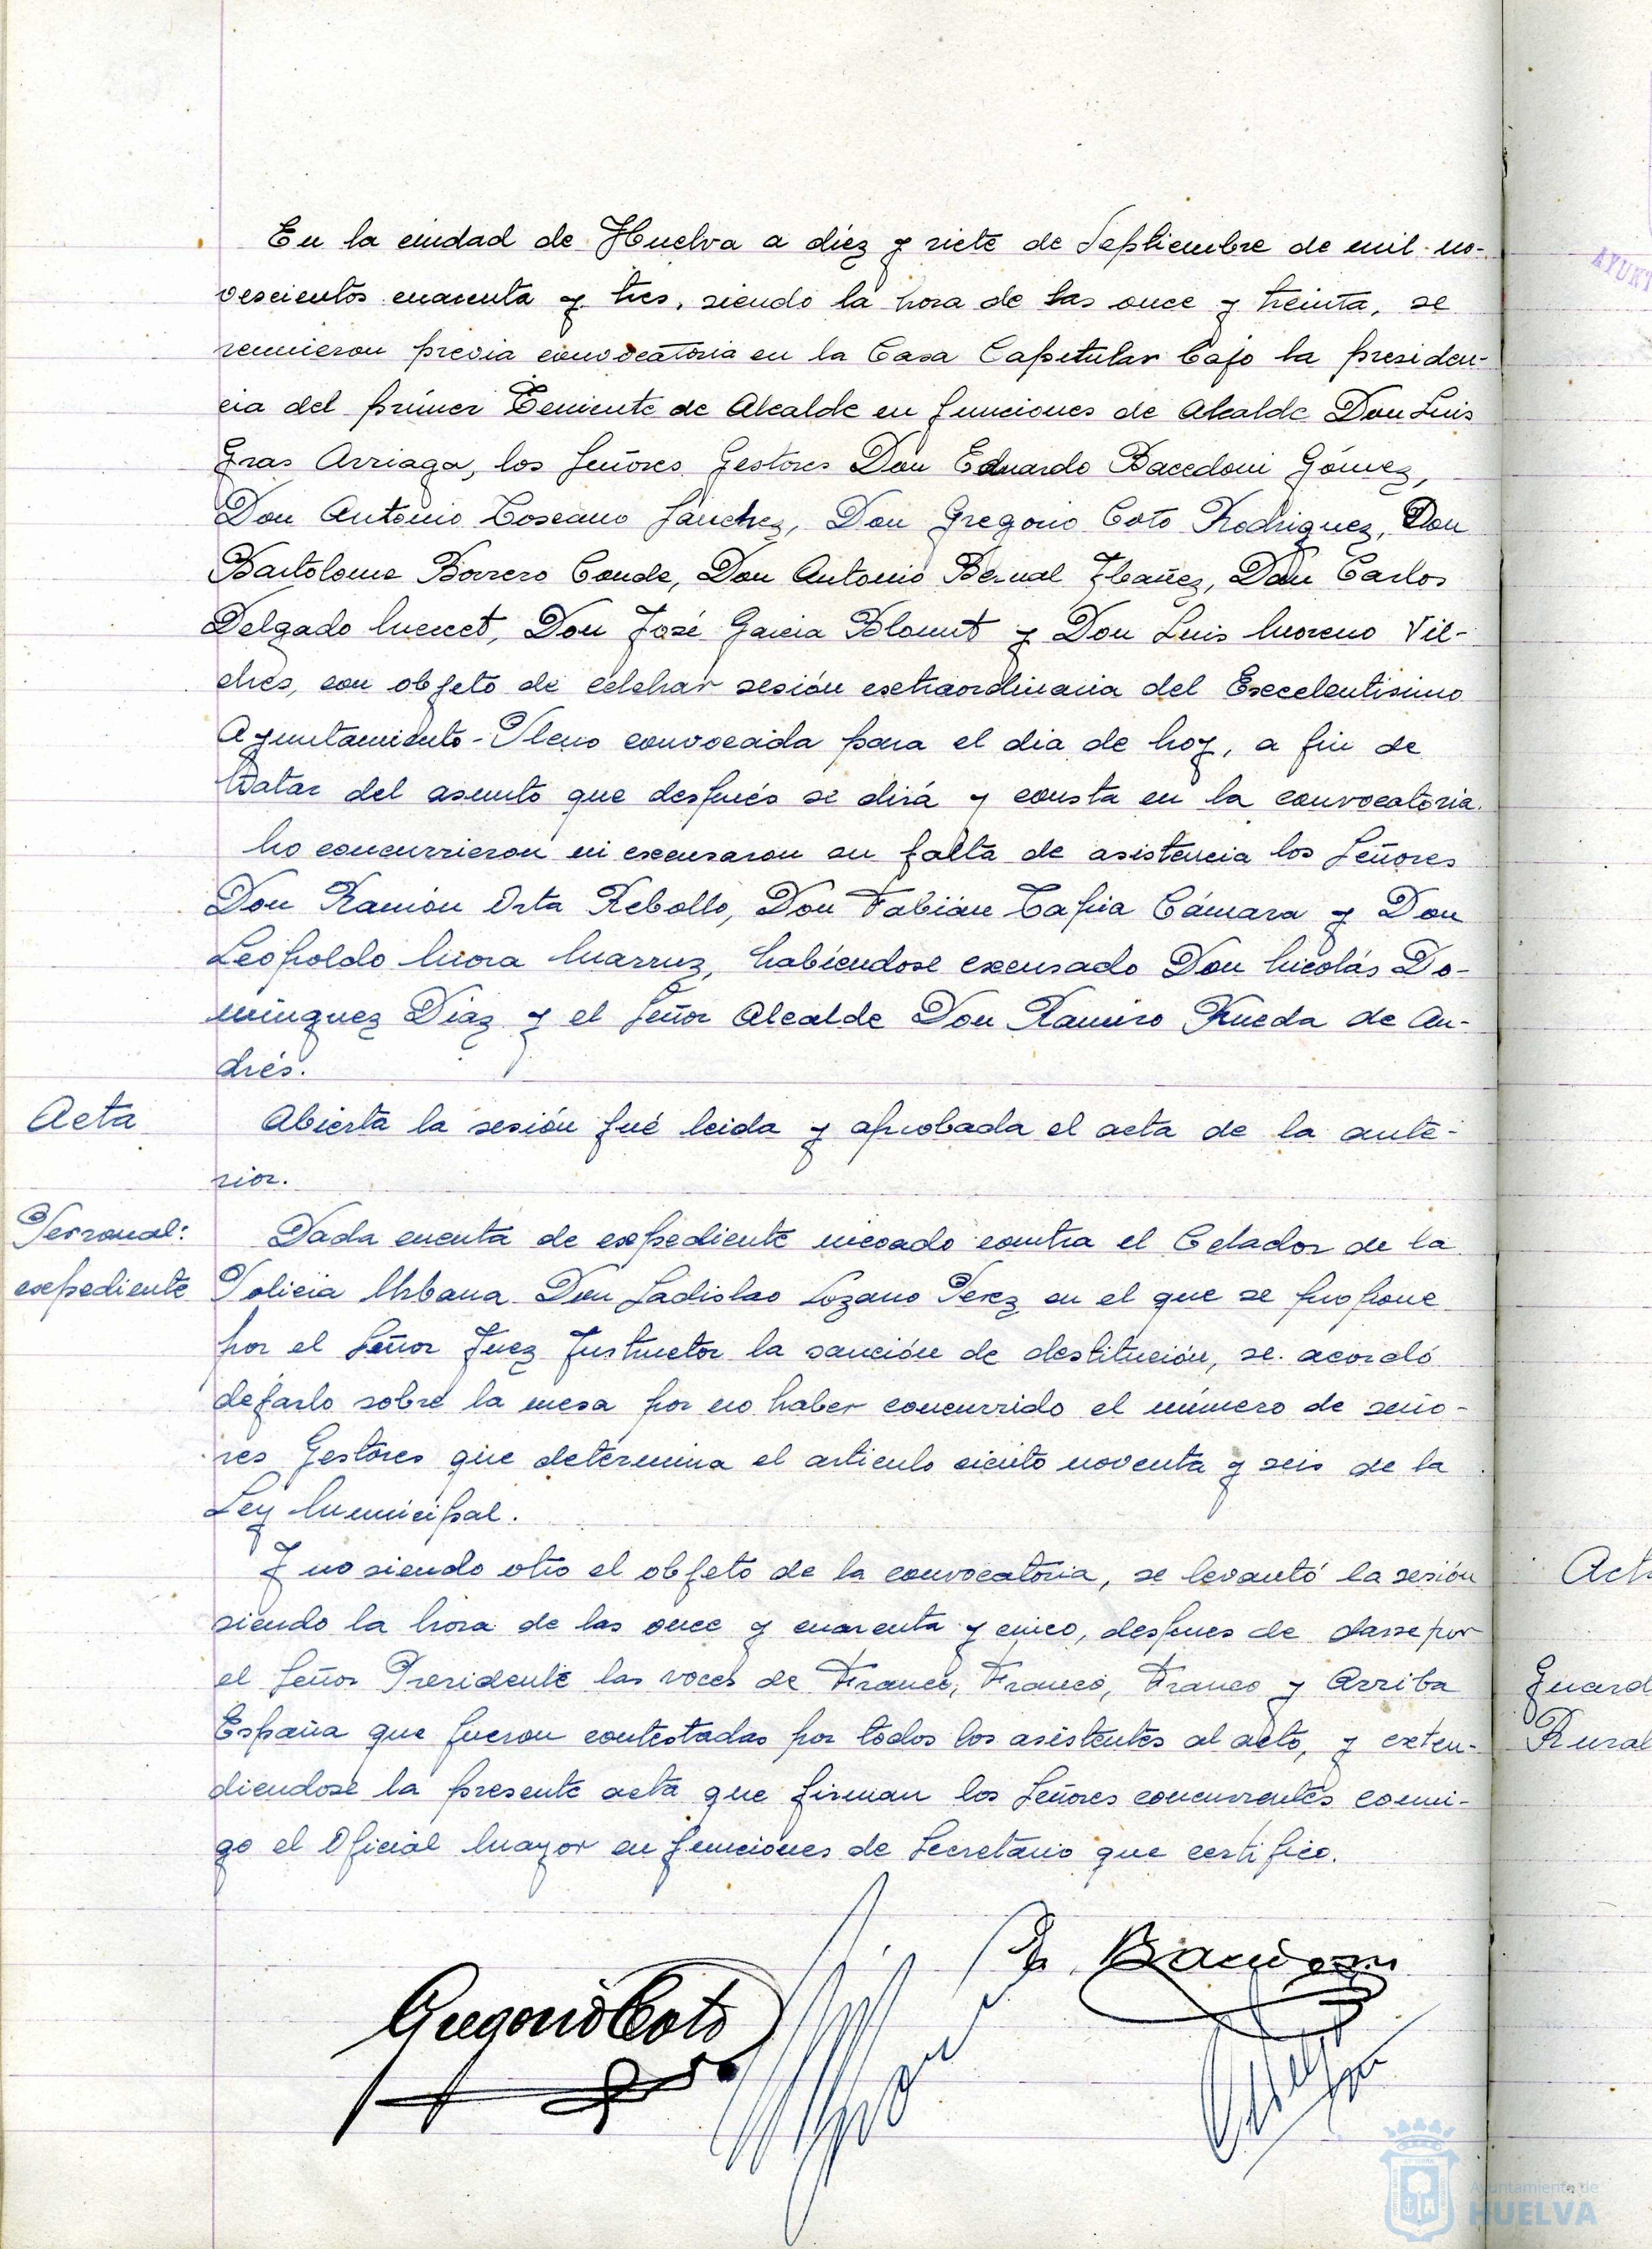 En la ciudad de Huelva a diez y siete de Septiembre de mil no-
vescientos cuarenta y tres, siendo la hora de las once y treinta, se
reunieron previa convocatoria en la Casa Capitular bajo la presiden-
cia del primer Teniente de Alcalde en funciones de Alcalde Don Luis
Gras Arriaga, los Señores Gestores Don Eduardo Bacedoni Gómez,
Don Antonio Toscano Sánchez, Don Gregorio Coto Rodriguez, Don
Bartolome Borrero Conde, Don Antonio Bernal Ibañez, Don Carlos
Delgado Mercet, Don José Garcia Blount y Don Luis Moreno Vil-
ches, con objeto de celebrar sesión extraordinaria del Excelentisimo
Ayuntamiento-Pleno convocada para el dia de hoy, a fin de
tratar del asunto que después se dirá y consta en la convocatoria.
No concurrieron ni excusaron su falta de asistencia los Señores
Don Ramón Orta Rebollo, Don Fabián Tapia Cámara y Don
Leopoldo Mora Marruz, habiendose excusado Don Nicolás Do-
minguez Diaz y el Señor Alcalde Don Ramiro Rueda de An-
drés.
Acta
Abierta la sesión fué leida y aprobada el acta de la ante-
rior.
Personal:
expediente
Dada cuenta de expediente incoado contra el Celador de la
Policia Urbana Don Ladislao Lozano Perez en el que se propone
por el Señor Juez Instructor la sanción de destitución, se acordó
dejarlo sobre la mesa por no haber concurrido el número de seño-
res Gestores que determina el articulo ciento noventa y seis de la
Ley Municipal.
Y no siendo otro el objeto de la convocatoria, se levantó la sesión
siendo la hora de las once y cuarenta y cinco, despues de darse por
el Señor Presidente las voces de Franco, Franco, Franco y Arriba
España que fueron contestadas por todos los asistentes al acto, y exten-
diendose la presente acta que firman los Señores concurrentes conmi-
go el Oficial Mayor en funciones de Secretario que certifico.
Gregorio Coto
E. Bacedoni
AYUNT
Acta
Guard
Rural
Ayuntamiento de
HUELVA